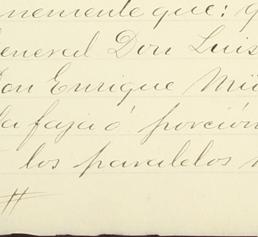 nemente que: q
General Don Luis
Don Enrique Mü
la faja ó porción
los paralelos
#